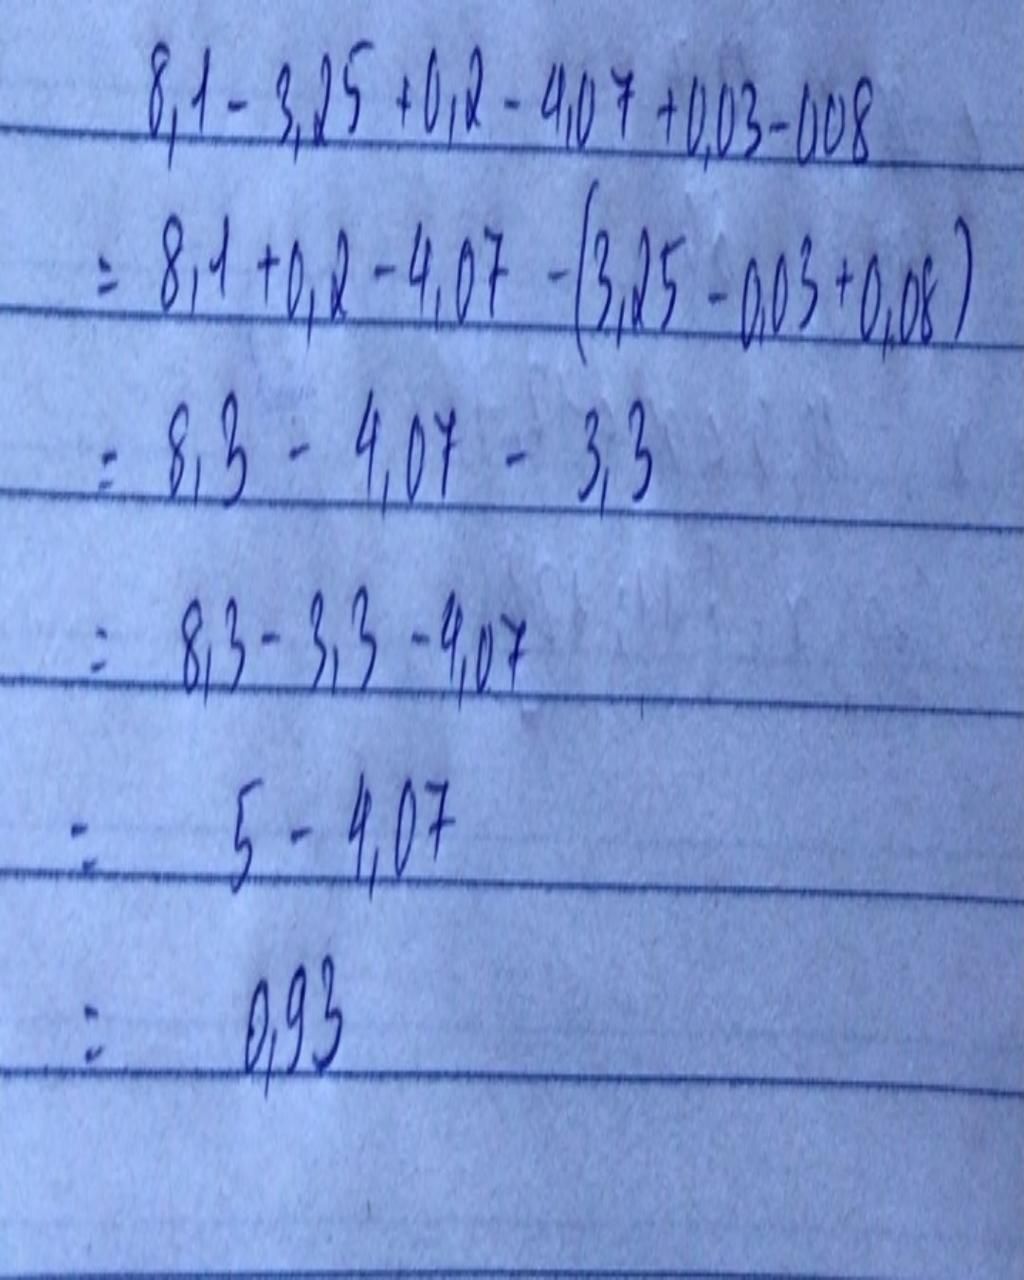 8,1 - 3,25 + 0,2 - 4,07 + 0,03 - 0,08
= 8,1 + 0,2 - 4,07 - (3,25 - 0,03 + 0,08)
= 8,3 - 4,07 - 3,3
= 8,3 - 3,3 - 4,07
= 5 - 4,07
= 0,93